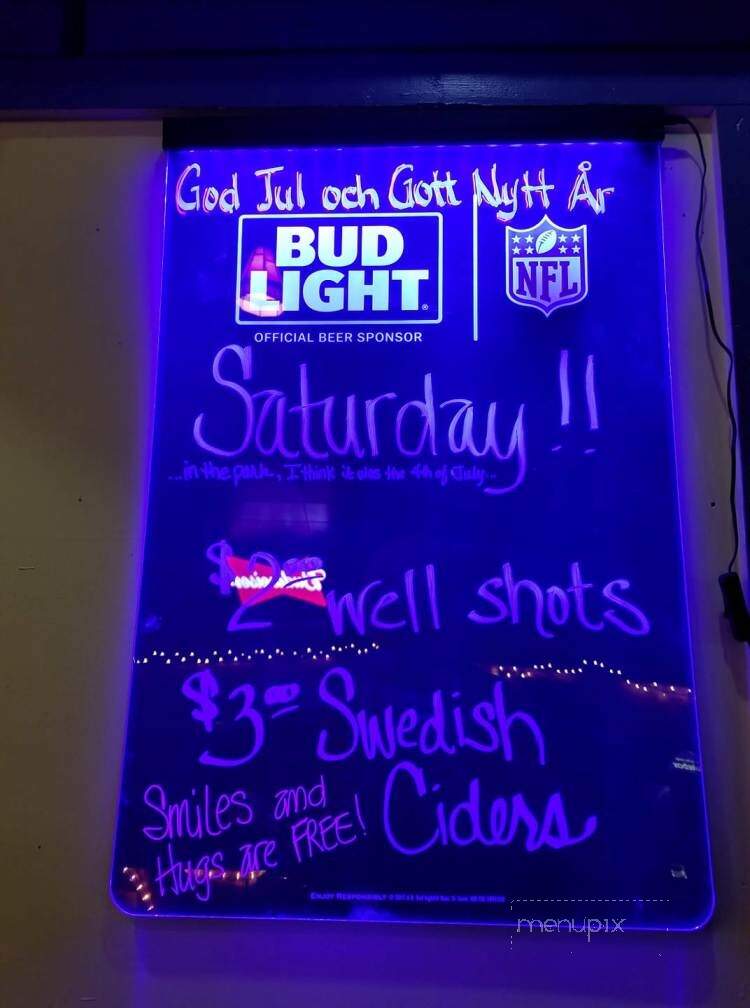 God Jul och Gott Nytt År
BUD
LIGHT®
OFFICIAL BEER SPONSOR
NFL
Saturday!!
...in the park, I think it was the 4th of July...
$2.00 well shots
$3.00 Swedish
Ciders
Smiles and
Hugs are FREE!
ENJOY RESPONSIBLY
menupix